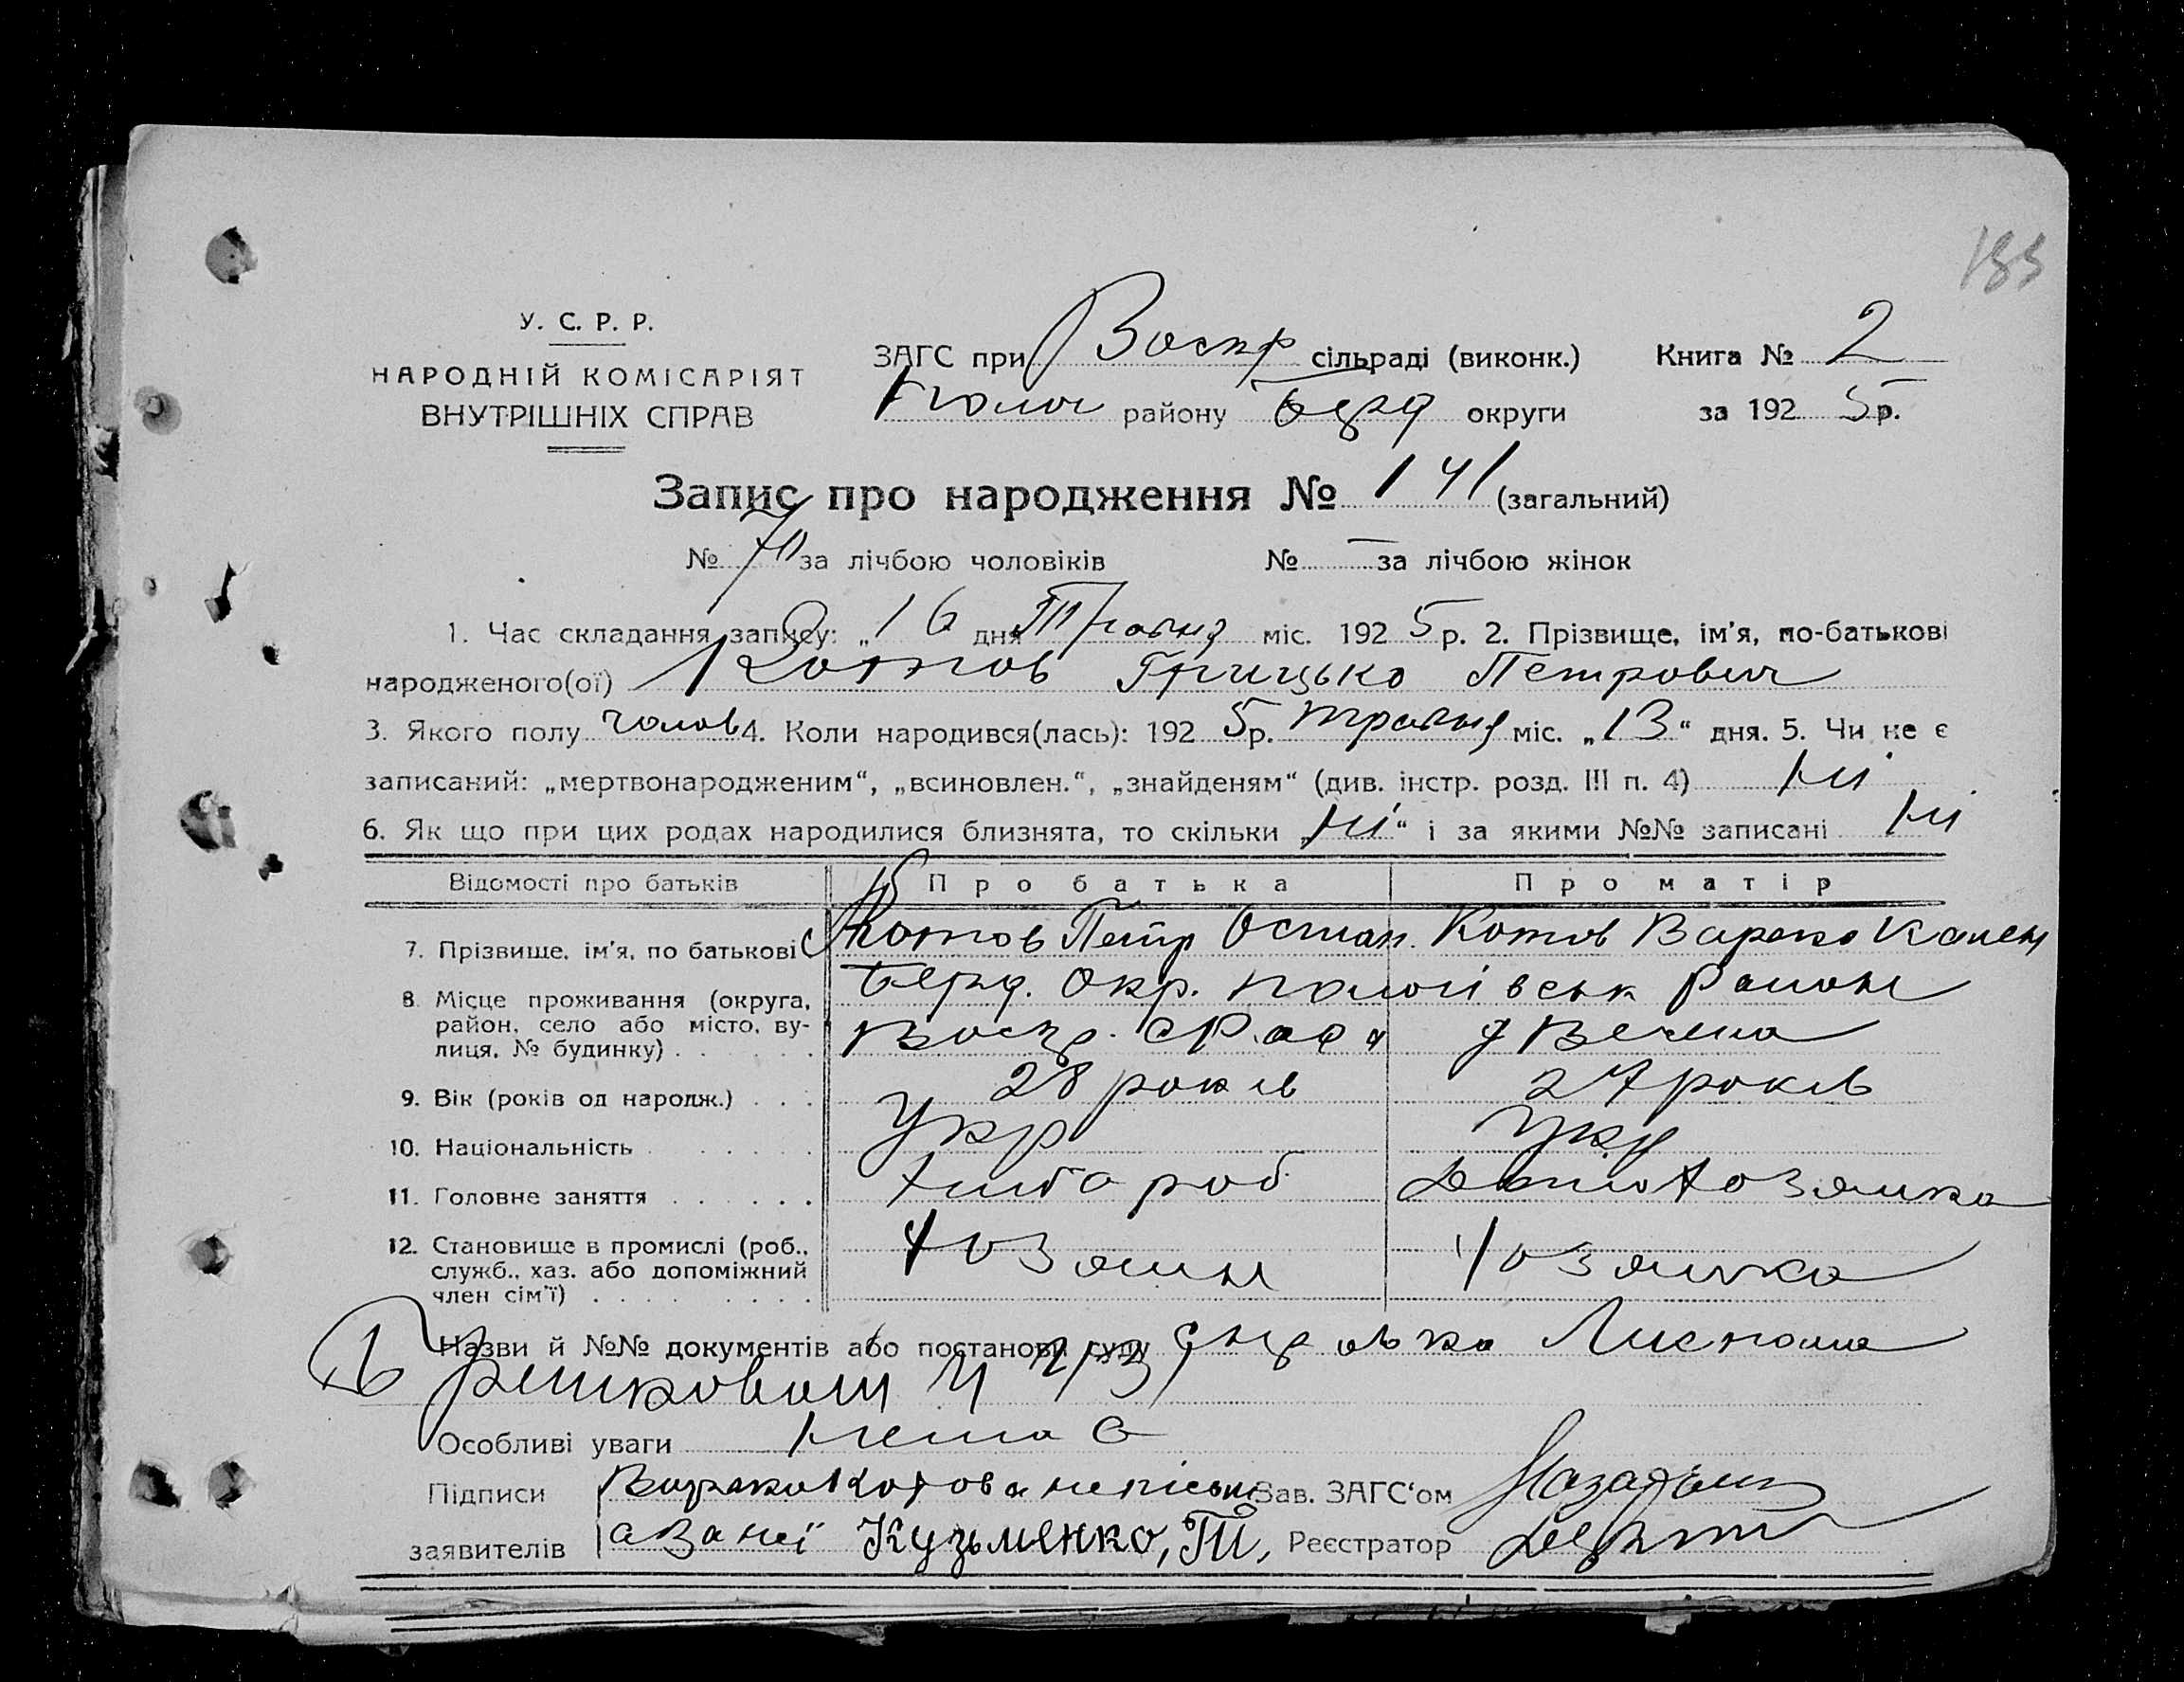 183
У. С. Р. Р.
НАРОДНІЙ КОМІСАРІЯТ
ВНУТРІШНІХ СПРАВ
ЗАГС при Воскр сільраді (виконк.) Книга № 2
Полог району Берд округи за 192 5 р.
Запис про народження № 141 (загальний)
№ 70 за лічбою чоловіків № — за лічбою жінок
1. Час складання запису: „16 дня Травня міс. 192 5 р. 2. Прізвище, ім'я, по-батькові
народженого(ої) Котов Грицько Петрович
3. Якого полу чолов 4. Коли народився(лась): 192 5 р. травня міс. „13“ дня. 5. Чи не є
записаний: „мертвонародженим“, „всиновлен.“, „знайденям“ (див. інстр. розд. III п. 4) ні
6. Як що при цих родах народилися близнята, то скільки „ні“ і за якими №№ записані ні
Відомості про батьків Про батька Про матір
7. Прізвище, ім'я, по батькові Котов Петр Остап. Котов Варька
8. Місце проживання (округа, район, село або місто, вулиця, № будинку) Берд. Окр. Пологівськ Район
Воскр. с Рада
9. Вік (років од народж.) 28 років 27 років
10. Національність Укр Укр
11. Головне заняття хліба роб Домохозяйка
12. Становище в промислі (роб., служб., хаз. або допоміжний член сім'ї) хозяин хозяйка
Назви й №№ документів або постанови суду
Особливі уваги немає
Підписи Варька Котова неписьм Зав. ЗАГС'ом
заявителів а за неї Кузьменко, Т, Реєстратор